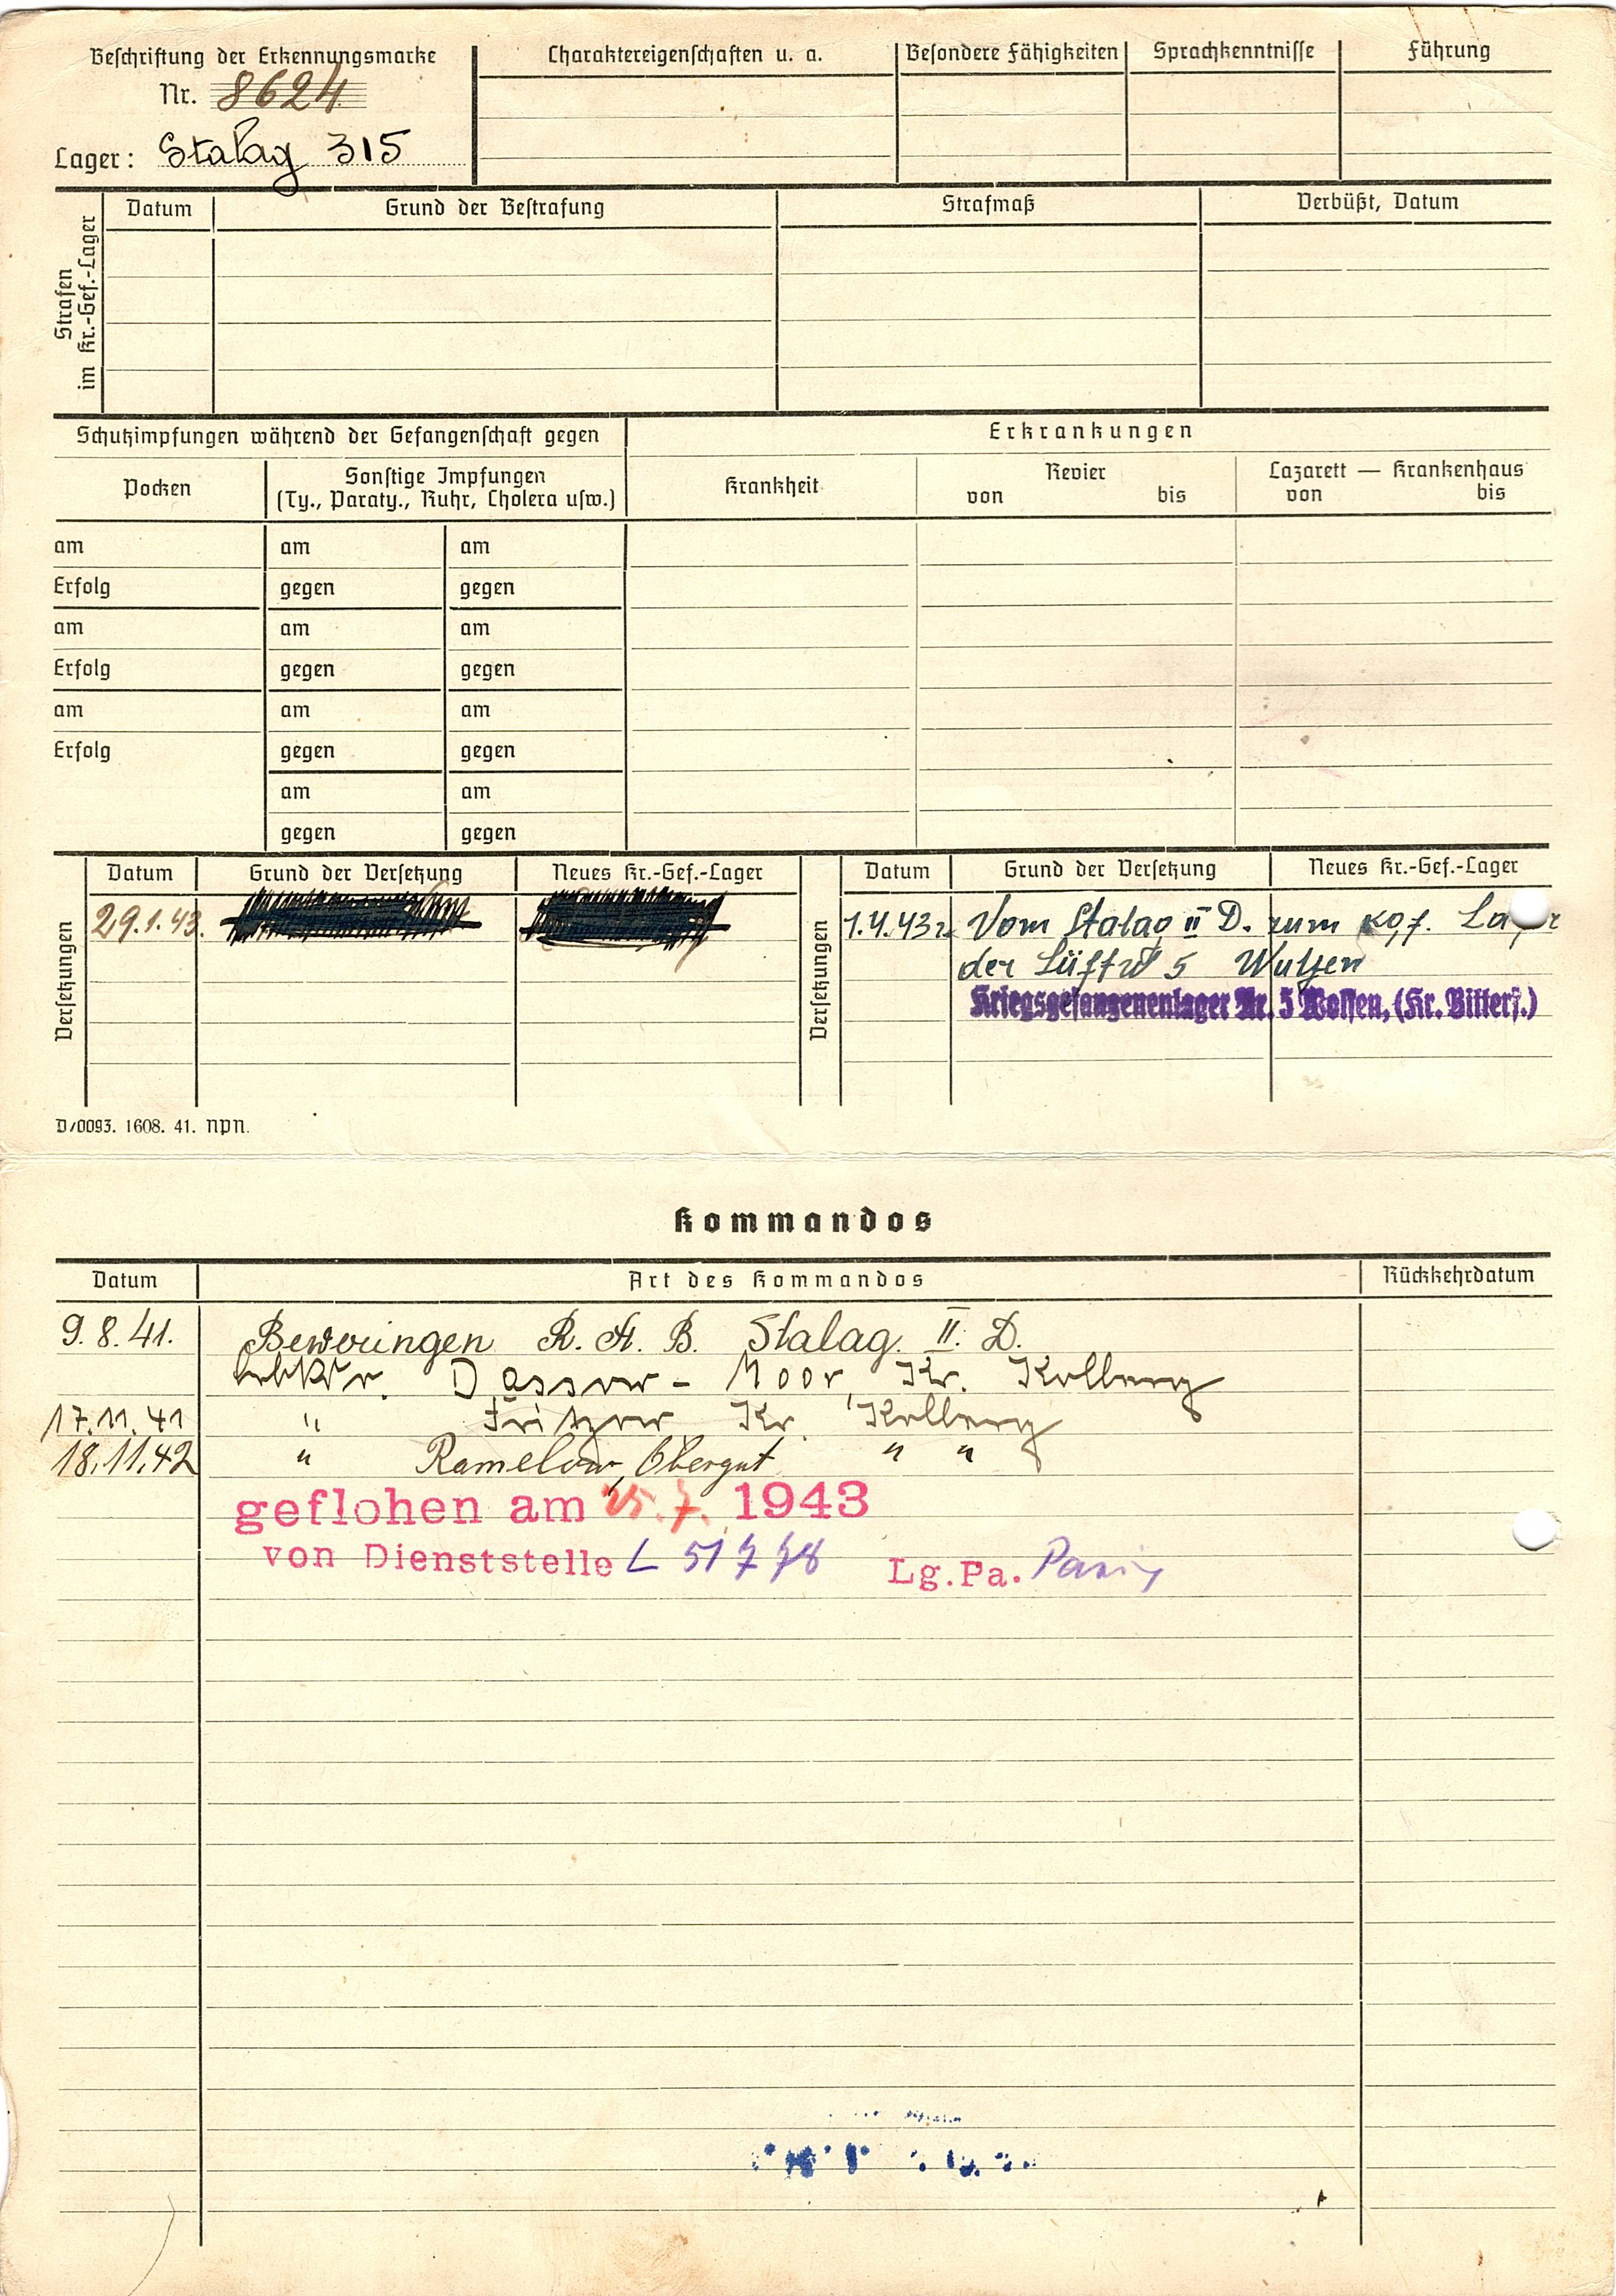 Beschriftung der Erkennungsmarke
Nr. 8624
Lager: Stalag 315
Charaktereigenschaften u. a.
Besondere Fähigkeiten
Sprachkenntnisse
Führung
Strafen im Kr.-Gef.-Lager
Datum
Grund der Bestrafung
Strafmaß
Verbüßt, Datum
Schutzimpfungen während der Gefangenschaft gegen
Erkrankungen
Pocken
Sonstige Impfungen
(Ty., Paraty., Ruhr, Cholera usw.)
Krankheit
Revier
von bis
Lazarett — Krankenhaus
von bis
am am am
Erfolg gegen gegen
am am am
Erfolg gegen gegen
am am am
Erfolg gegen gegen
am am
gegen gegen
Versetzungen
Datum Grund der Versetzung Neues Kr.-Gef.-Lager
29.1.43.
Versetzungen
Datum Grund der Versetzung Neues Kr.-Gef.-Lager
1.4.43 Vom Stalag II D. zum kgf.
der 5
Kriegsgefangenenlager Nr. 5 Wolfen, (Kr. Bitterf.)
D/0093. 1608. 41. npn.
Kommandos
Datum Art des Kommandos Rückkehrdatum
9.8.41. Beweringen R. A. B. Stalag. II. D.
Moor, Kr. Kolberg
17.11.41 " Fritzow Kr. Kolberg
18.11.42 " Ramelow, Obergut " "
geflohen am 25.7. 1943
von Dienststelle L 51778 Lg.Pa. Paris